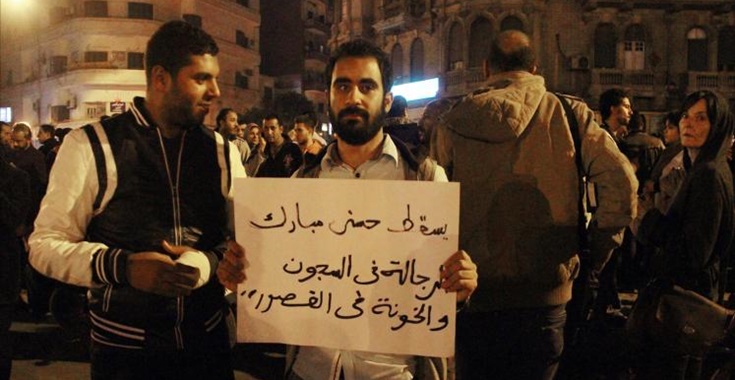 يسقط حسنى مبارك
الرجالة فى السجون
والخونة فى القصور،،